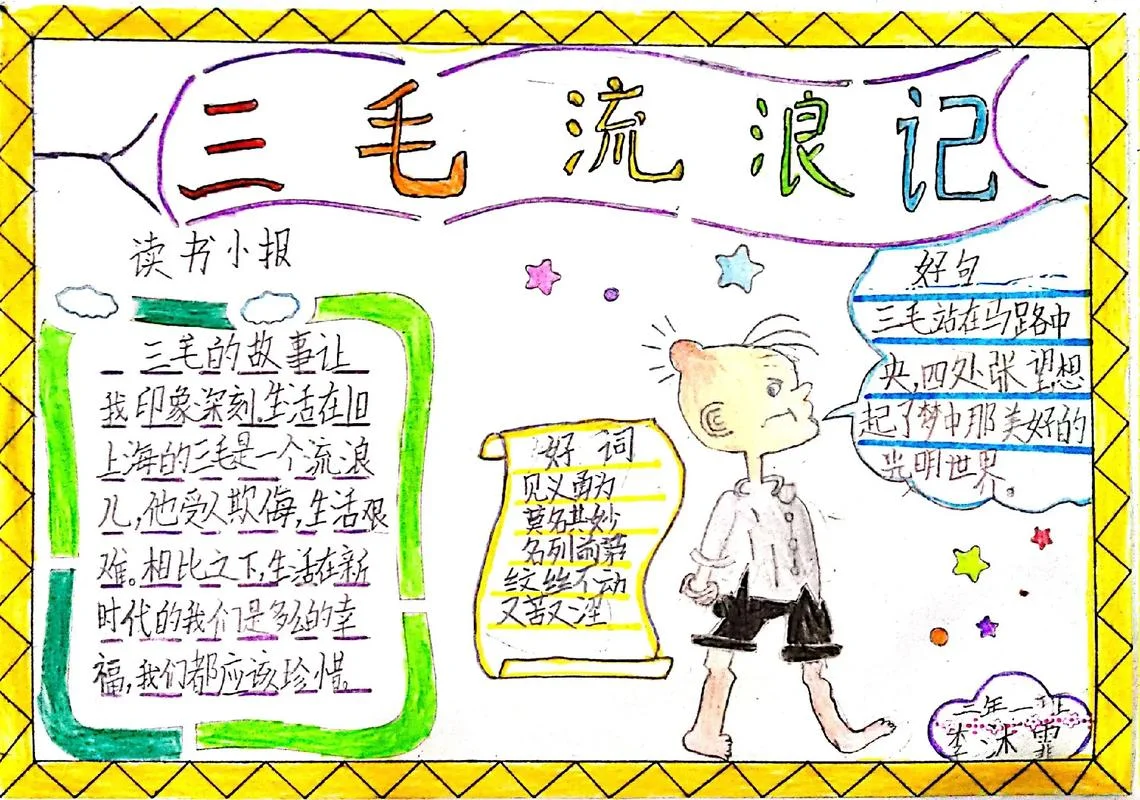 三毛流浪记
读书小报
三毛的故事让
我印象深刻.生活在旧
上海的三毛是一个流浪
儿,他受人欺侮,生活艰
难。相比之下,生活在新
时代的我们是多么的幸
福,我们都应该珍惜。
好词
见义勇为
莫名其妙
名列前茅
纹丝不动
又苦又涩
好句
三毛站在马路中
央,四处张望,想
起了梦中那美好的
光明世界。
三年一班
李沐霏